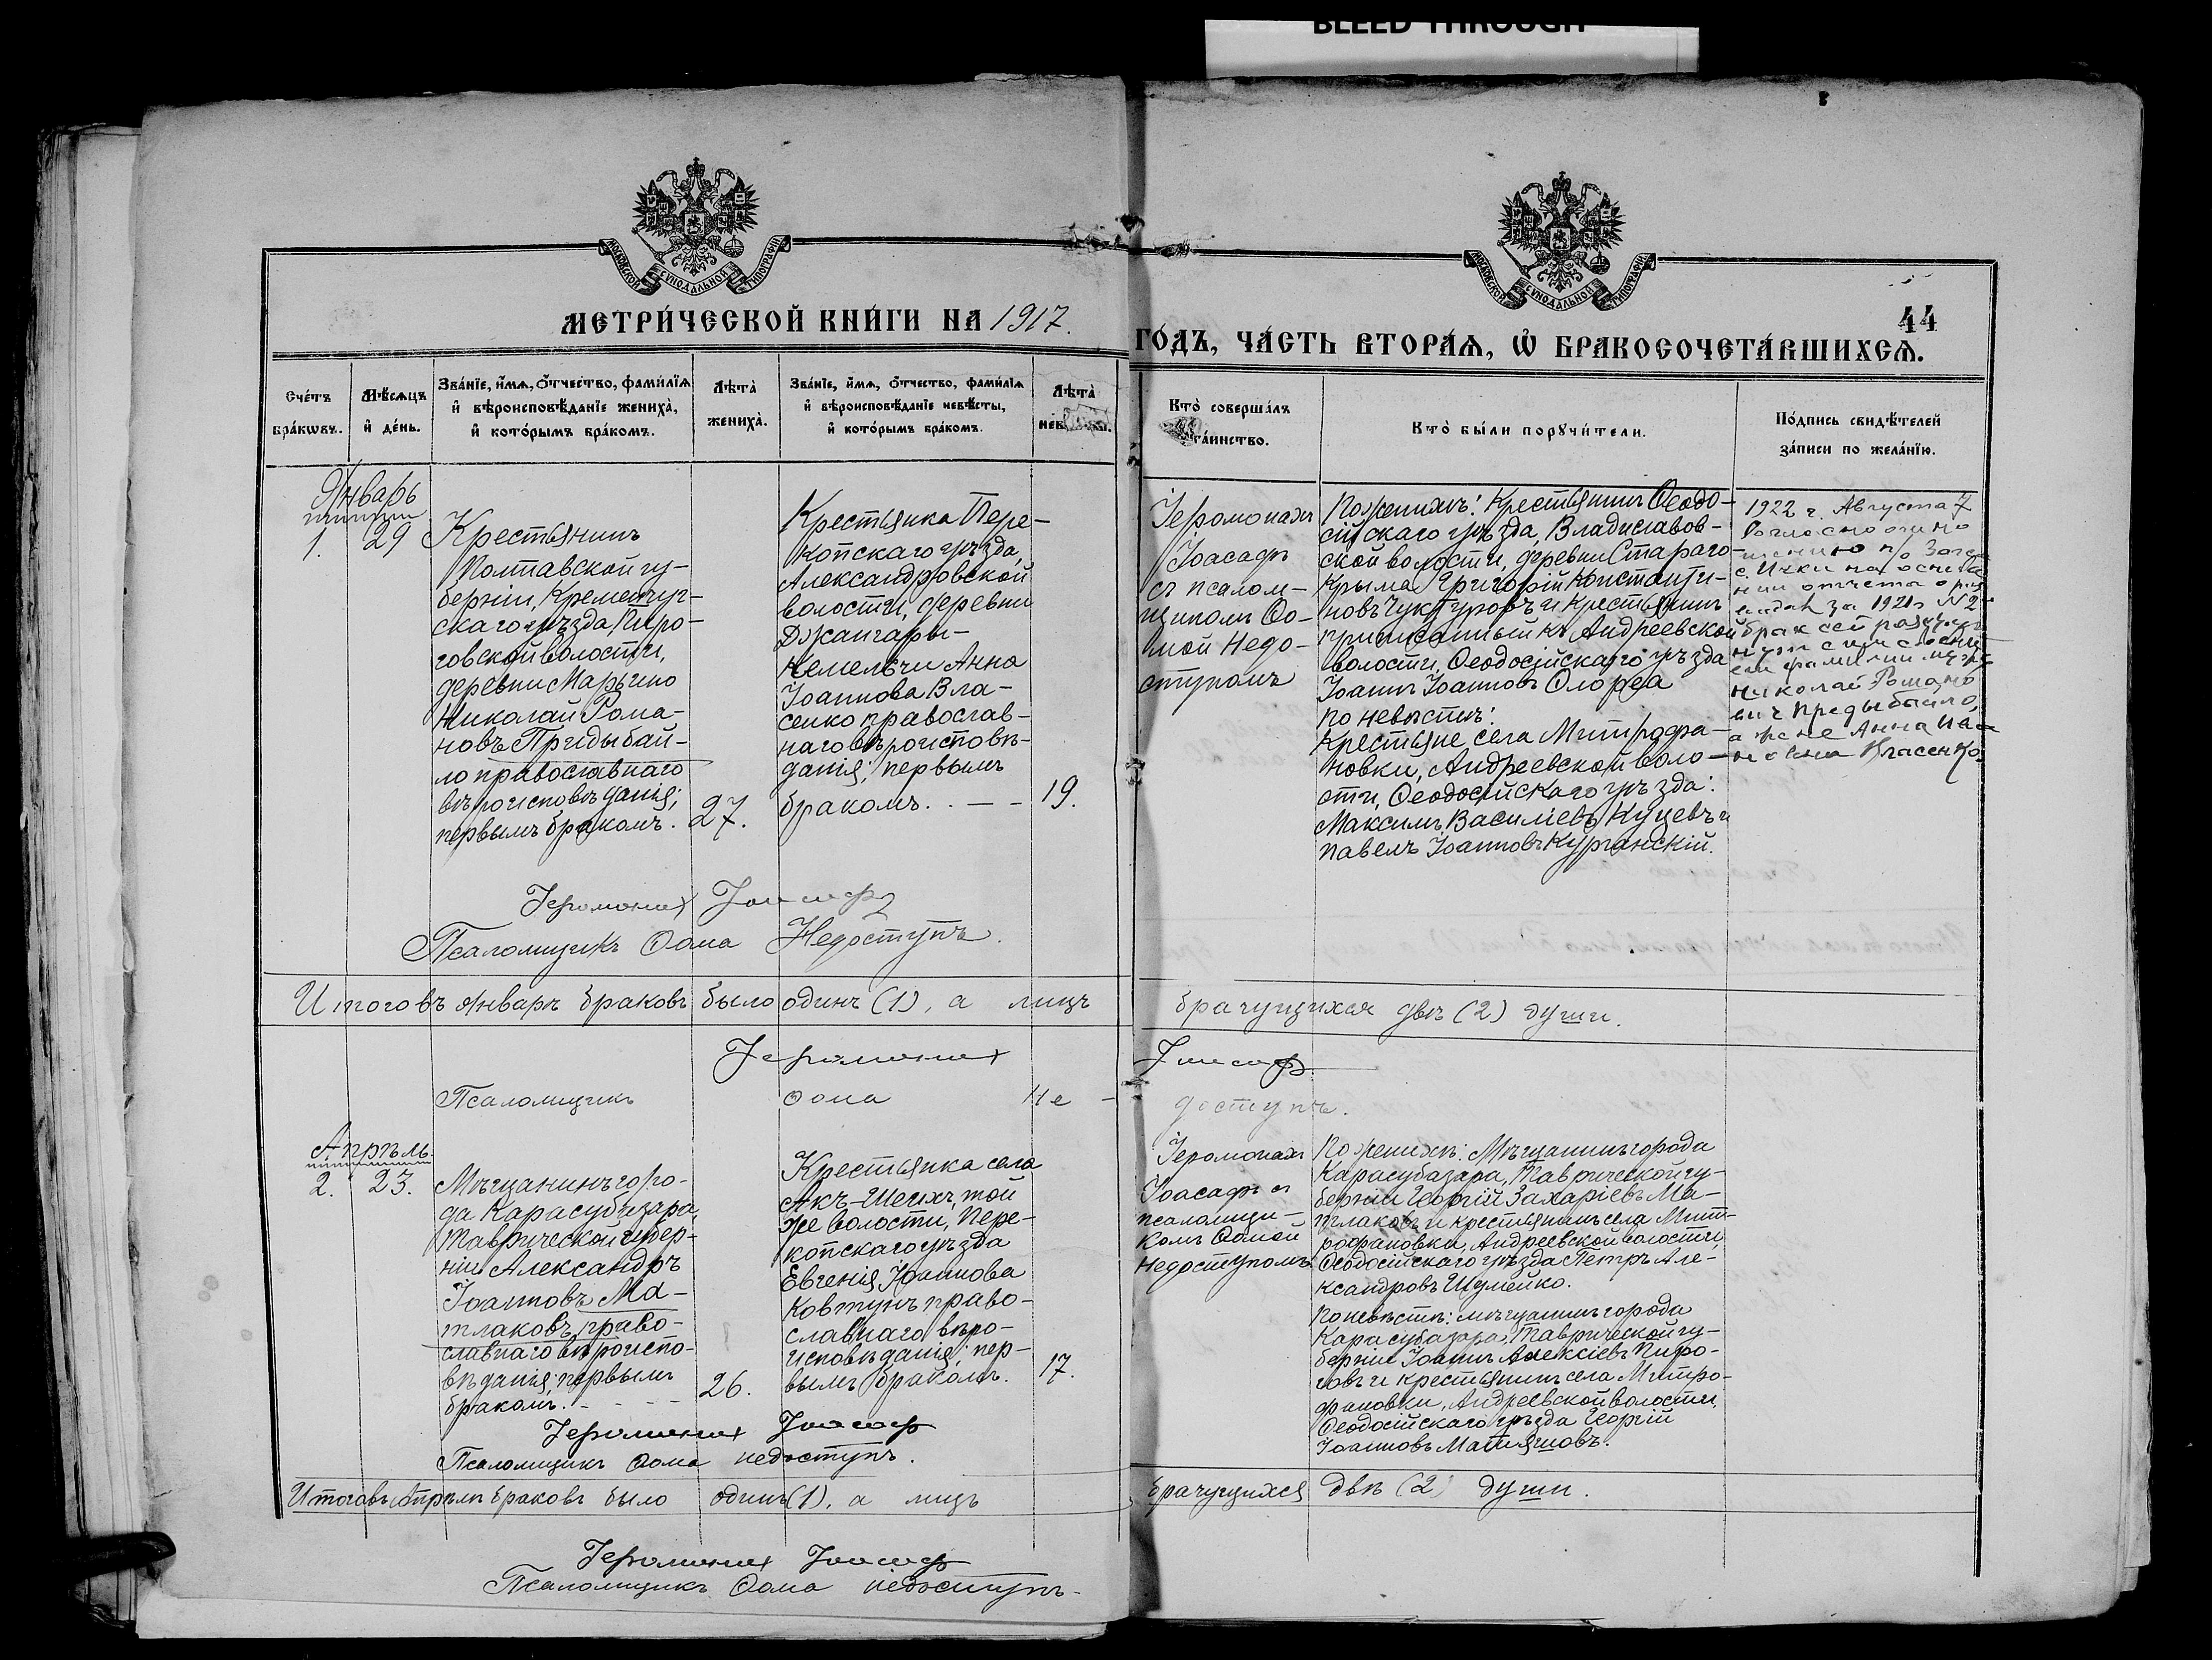 BLEED THROUGH
МОСКОВСКОЙ СѴНОДАЛЬНОЙ ТИПОГРАФІИ
МОСКОВСКОЙ СѴНОДАЛЬНОЙ ТИПОГРАФІИ
МЕТРИ́ЧЕСКОЙ КНИ́ГИ НА 1917.
44
ГО́ДЪ, ЧА́СТЬ ВТОРА́Ѧ, Ѿ БРАКОСОЧЕТА́ВШИХСѦ.
Сче́тъ
бра́кѡвъ.
Мѣ́сѧцъ
и҆ де́нь.
Зва́нїе, и҆́мѧ, ѻ҆́тчество, фами́лїѧ
и҆ вѣроисповѣ́данїе жениха̀,
и҆ кото́рымъ бра́комъ.
Лѣта̀
жениха̀.
Зва́нїе, и҆́мѧ, ѻ҆́тчество, фами́лїѧ
и҆ вѣроисповѣ́данїе невѣ́сты,
и҆ кото́рымъ бра́комъ.
Лѣта̀
нев
Кто̀ соверша́лъ
та́инство.
Кто̀ бы́ли порꙋчи́тели.
По́дпись свидѣ́телей
за́писи по жела́нїю.
Январь
1. 29
Крестьянинъ
Полтавской гу-
берніи, Кременчуг-
скаго уѣзда, Пиро-
говской волости,
деревни Марьино
Николай Рома-
новъ Придыбай-
ло православнаго
вѣроисповѣданія;
первымъ бракомъ.
27.
Крестьянка Пере-
копскаго уѣзда,
Александровской
волости, деревни
Джангары-
Кемельчи Анна
Іоаннова Вла-
сенко православ-
наго вѣроисповѣ-
данія; первымъ
бракомъ. . — -
19.
Іеромонахъ
Іоасафъ
съ псалом-
щикомъ Ѳо-
мой Недо-
ступомъ
По женихѣ: Крестьянинъ Ѳеодо-
сійскаго уѣзда, Владиславов-
ской волости, деревни Стараго-
Крыма Григорій Константи-
новъ и крестьянинъ
приписанный къ Андреевской
волости, Ѳеодосійскаго уѣзда
Іоаннъ Іоанновъ
По невѣстѣ:
Крестьяне села Митрофа-
новки, Андреевской воло-
сти, Ѳеодосійскаго уѣзда:
Максимъ Васильевъ Куцевъ и
Павелъ Іоанновъ Курганскій.
1922 г. Августа 7
с. Ички на основа
нии отчета о раз
за 1921 г N 2
брак сей
фамилии
Николай Романо
вич Придыбайло,
а жене Анна Ива
новна Власенко.
Іеромонах Іоасаф
Псаломщикъ Ѳома Недоступъ.
Итого въ Январѣ браковъ было одинъ (1), а лицъ
брачущихся двѣ (2) души.
Іеромонах Іоасаф
Псаломщикъ Ѳома Не-
доступъ.
Апрѣль
2. 23.
Мѣщанинъ горо-
да Карасубазара,
Таврической губер-
ніи Александръ
Іоанновъ Ма-
тлаковъ, право-
славнаго вѣроиспо-
вѣданія; первымъ
бракомъ. - - - -
26.
Крестьянка села
Акъ-Шеихъ, той
же волости, Пере-
копскаго уѣзда
Евгенія Іоаннова
Ковтунъ право-
славнаго вѣро-
исповѣданія; пер-
вымъ бракомъ.
17.
Іеромонахъ
Іоасафъ съ
псаломщи-
комъ Ѳомой
Недоступомъ.
По женихѣ: Мѣщанинъ города
Карасубазара, Таврической гу-
берніи Георгій Захаріевъ Ма-
тлаковъ и крестьянинъ села Мит-
рофановки, Андреевской волости,
Ѳеодосійскаго уѣзда Петръ Але-
ксандровъ Шумейко.
По невѣстѣ: мѣщанинъ города
Карасубазара, Таврической гу-
берніи Іоаннъ Алексіевъ Пиро-
говъ и крестьянинъ села Митро-
фановки, Андреевской волости,
Ѳеодосійскаго уѣзда Георгій
Іоанновъ Матяшовъ.
Іеромонах Іоасаф
Псаломщикъ Ѳома Недоступъ.
Итого въ Апрѣлѣ браковъ было одинъ (1), а лицъ
брачущихся двѣ (2) души.
Іеромонах Іоасаф
Псаломщикъ Ѳома Недоступъ.